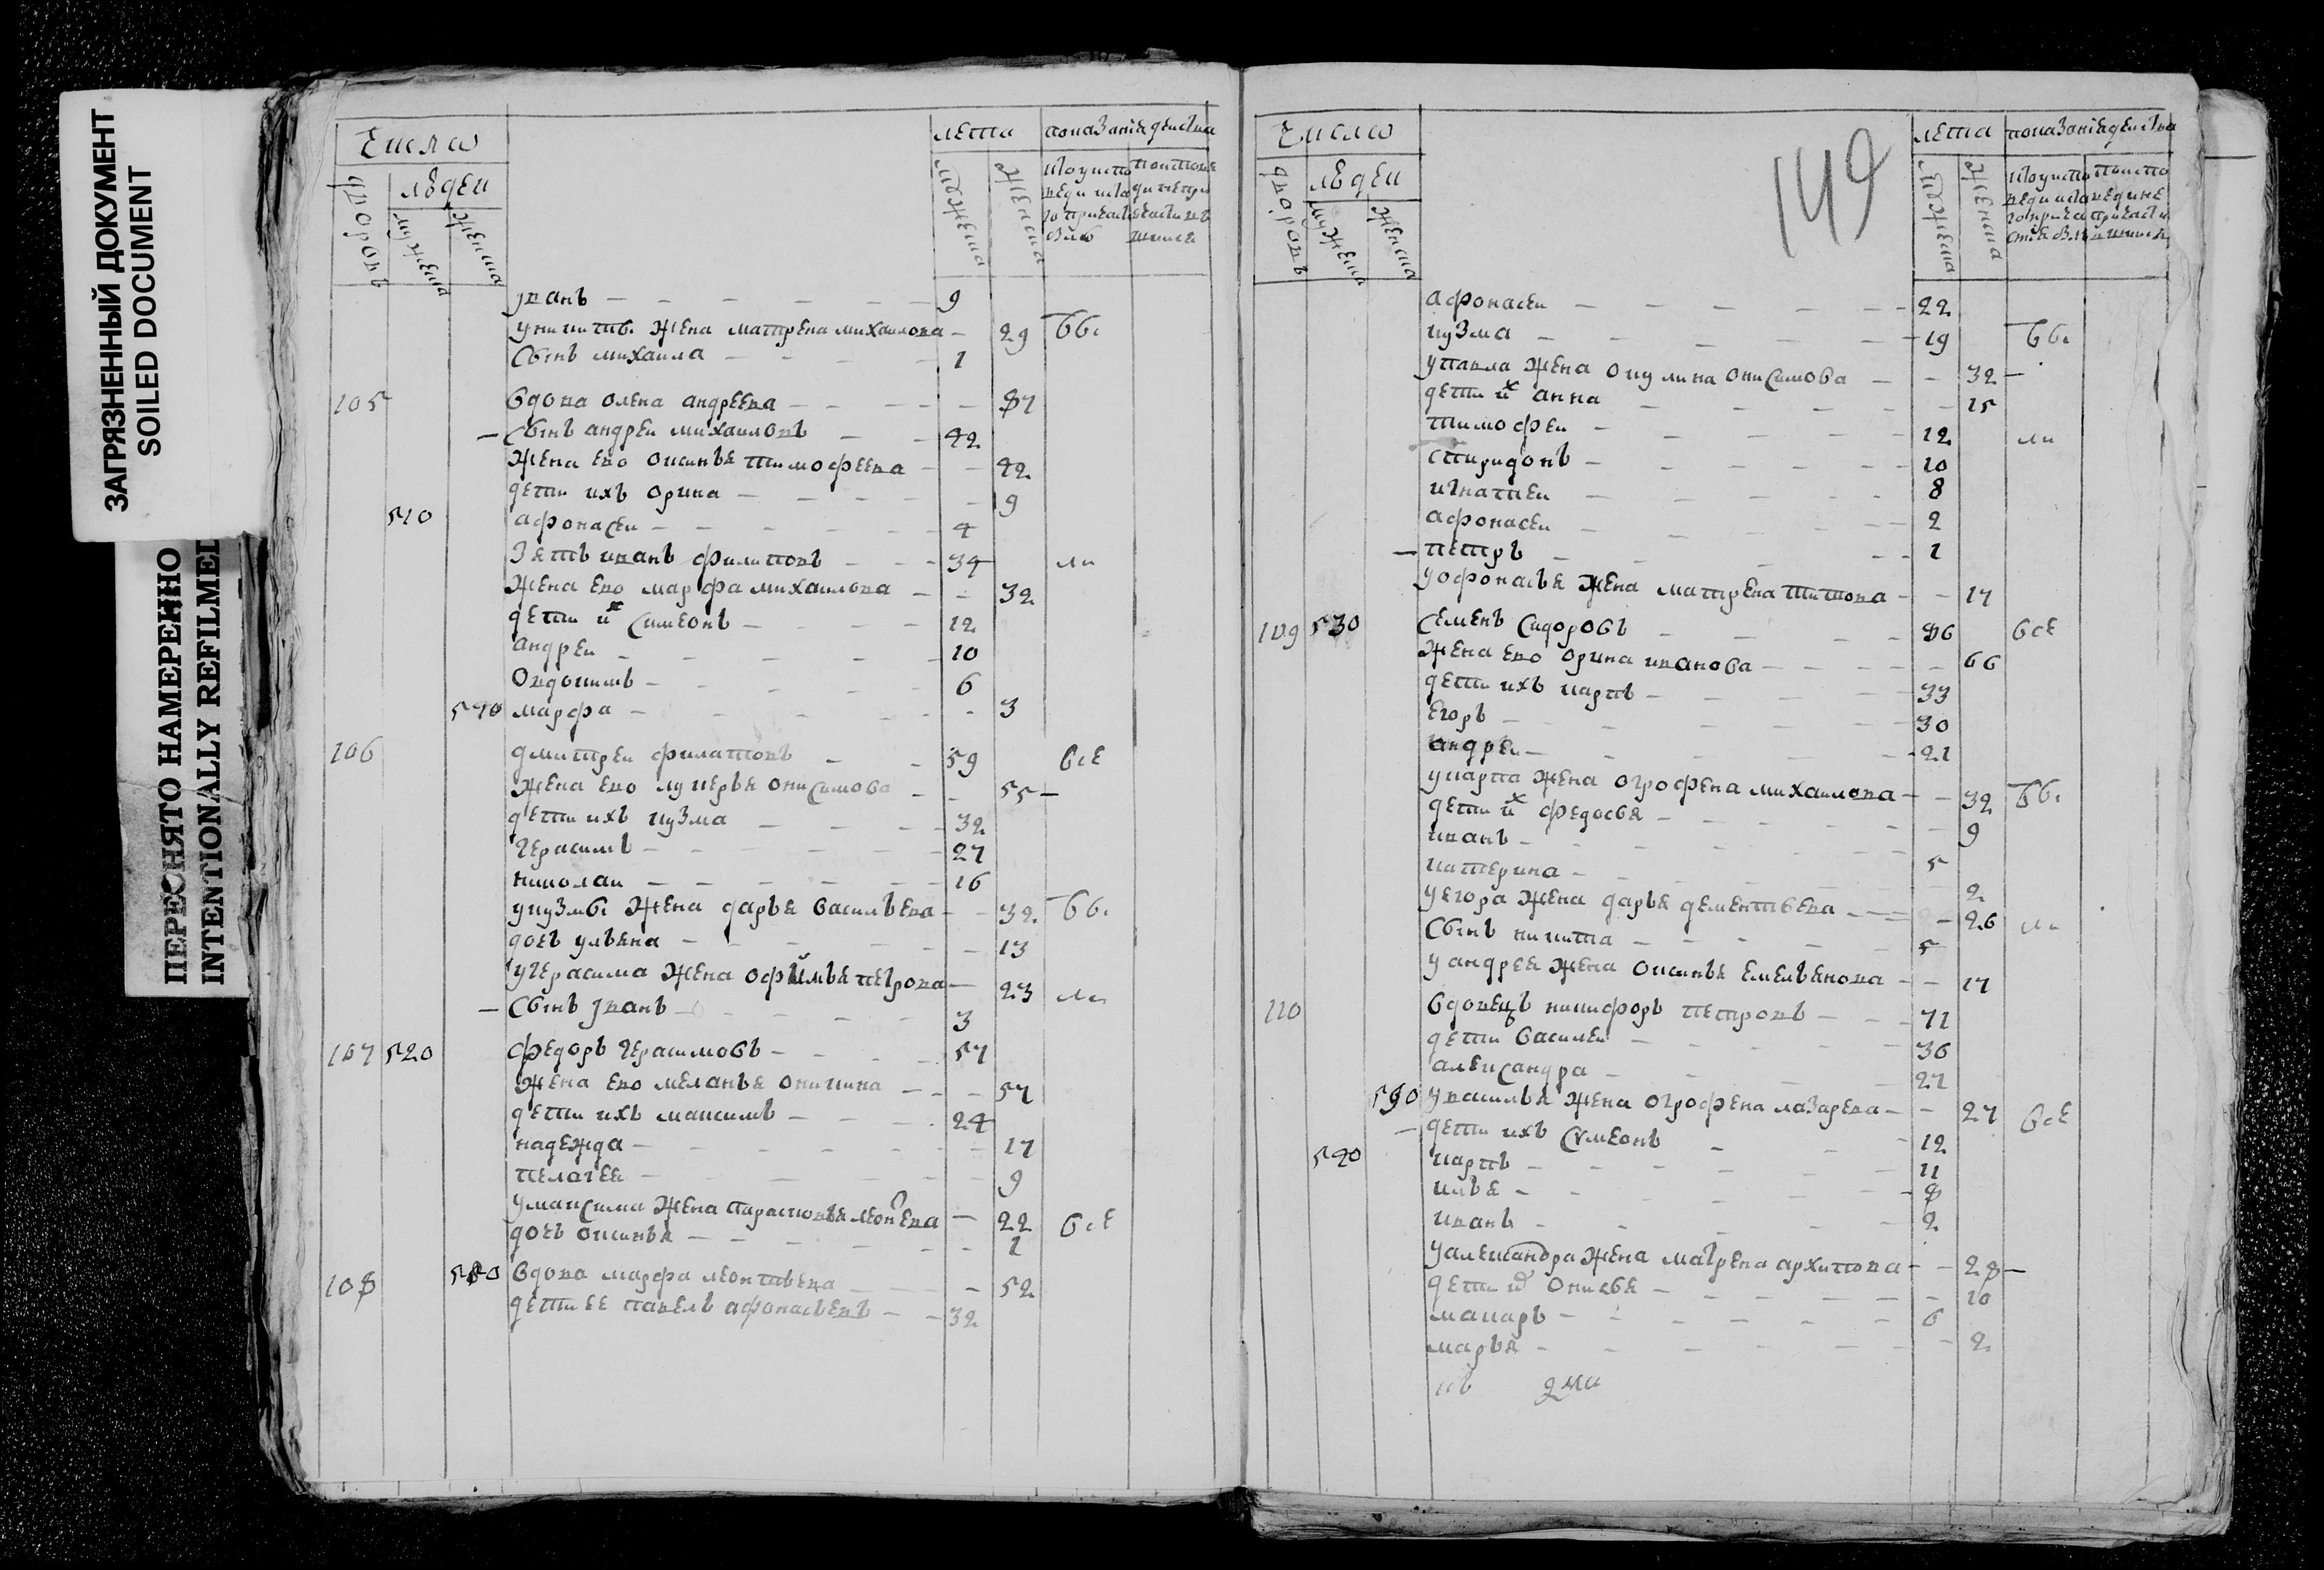 ЗАГРЯЗНЕННЫЙ ДОКУМЕНТ
SOILED DOCUMENT
ПЕРЕСНЯТО НАМЕРЕННО
INTENTIONALLY REFILMED
Число лета показание действа
дворовъ людеи мужеска женска мужеска женска
иванъ 9
у никиты жена матрена михаилова 29 вы
сынъ михаила 1
105 вдова олена андреева 87
сынъ андреи михаиловъ 42
жена ево оксинья тимофеева 42
дети ихъ орина 9
510 афонасеи 4
зеть иванъ филиповъ 34
жена ево марфа михаилова 32
дети их симеонъ 12
андреи 10
овдокимъ 6
570 марфа 3
106 дмитреи филатовъ 59 все
жена ево лукерья онисимова 55
дети ихъ кузма 32
герасимъ 27
николаи 16
у кузмы жена дарья васильева 32 вы
дочь ульена 13
у герасима жена офимья петрова 23
сынъ иванъ 3
107 520 федоръ герасимовъ 57
жена ево меланья оникина 57
дети ихъ максимъ 24
надежда 17
пелагея 9
у максима жена парасковья леонтева 22 все
дочь оксинья 1
108 580 вдова марфа леонтьева 52
дети ее павелъ афонасьевъ 32
149
Число лета показание действа
дворовъ людеи мужеска женска мужеска женска
афонасеи 22
кузма 19 вы
у павла жена окулина онисимова 32
дети их анна 15
тимофеи 12
спиридонъ 10
игнатеи 8
афонасеи 2
петръ 1
у офонасья жена матрена титова 17
109 530 семенъ сидоровъ 86 все
жена ево орина иванова 66
дети ихъ карпъ 33
егоръ 30
андреи 21
у карпа жена огрофена михаилова 32 вы
дети их федосья 9
иванъ 5
катерина 2
у егора жена дарья дементьева 26
сынъ никита 5
у андрея жена оксинья емельянова 17
110 вдовецъ никифоръ петровъ 71
дети василеи 36
александра 27
590 у василья жена огрофена лазарева 27 все
дети ихъ симеонъ 12
540 карпъ 11
илья 8
иванъ 2
у александра жена матрена архипова 28
дети их онисья 10
макаръ 6
марья 2